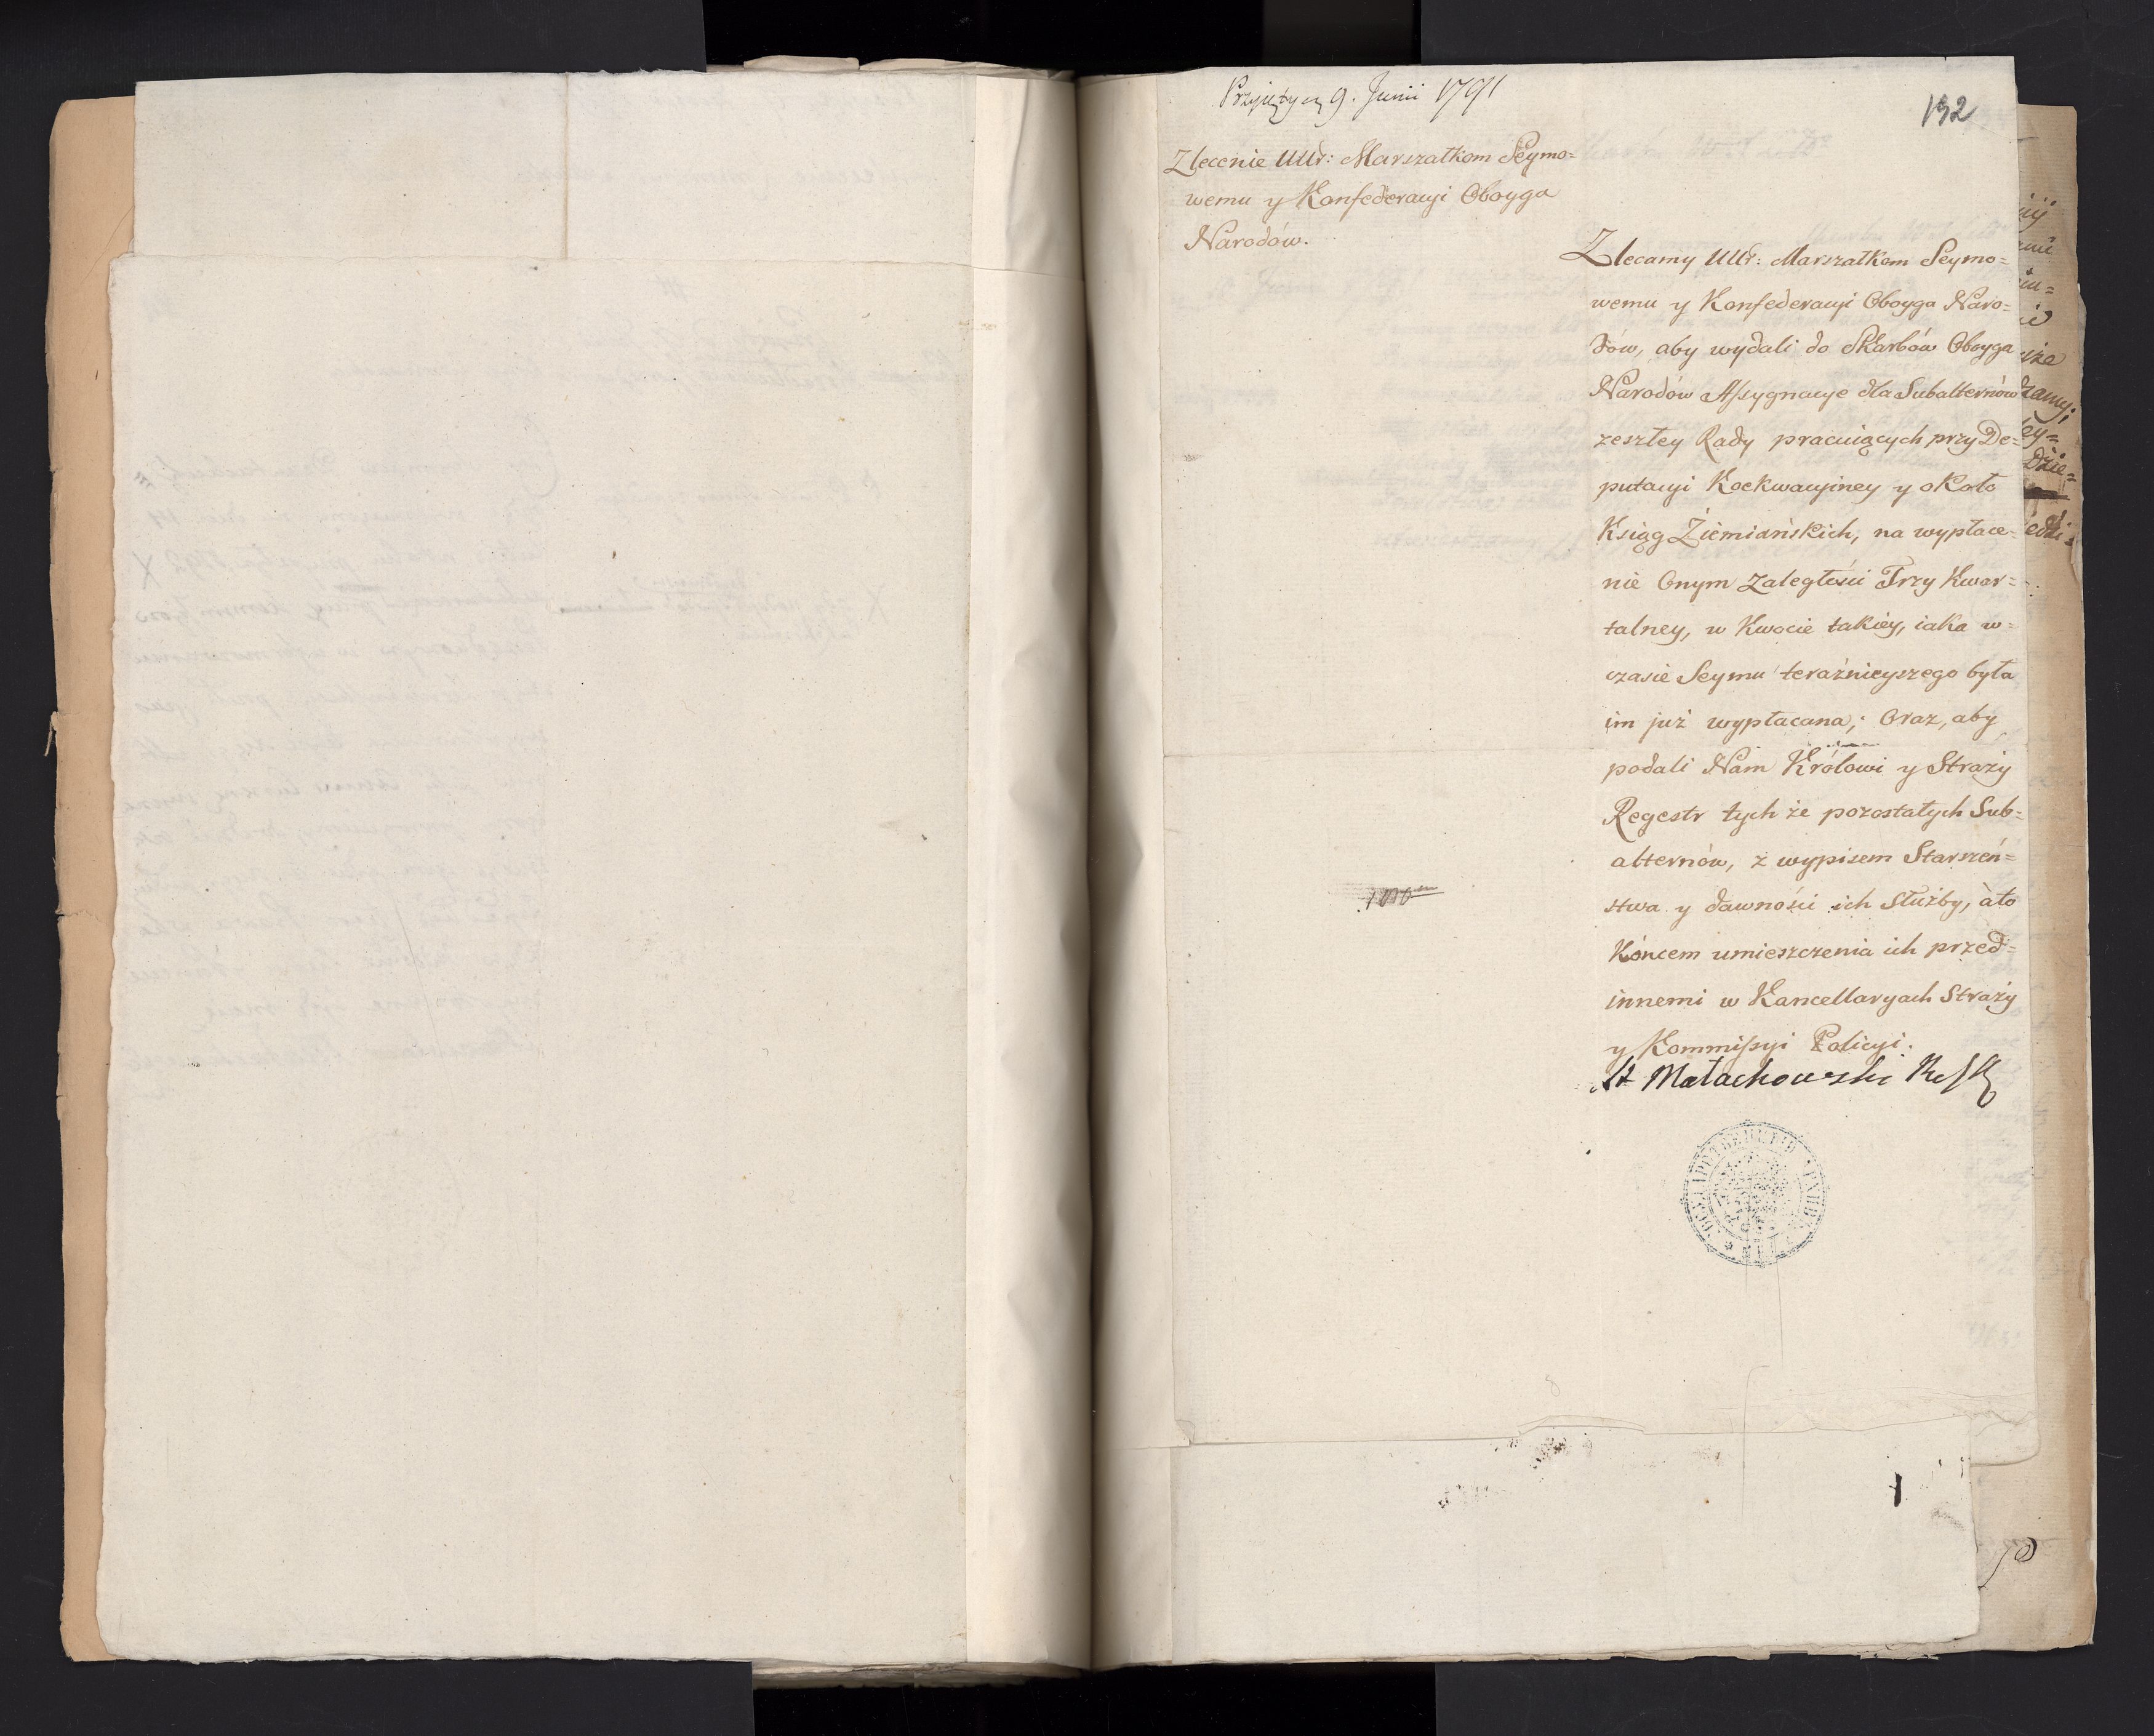 Przyięty 9. Junii 1791
132
Zlecenie UUr: Marszałkom Seymo=
wemu y Konfederacyi Oboyga
Narodów.
Zlecamy UUr: Marszałkom Seymo=
wemu y Konfederacyi Oboyga Naro=
dów, aby wydali do Skarbów Oboyga
Narodów Assygnacye dla Subalternów
zeszłey Rady pracuiących przy De=
putacyi Koekwacyiney y około
Ksiąg Ziemiańskich, na wypłace=
nie Onym zaległości Trzy Kwar=
talney, w Kwocie takiey, iaka w=
czasie Seymu teraźnieyszego była
im już wypłacana; Oraz, aby
podali Nam Królowi y Straży
Regestr tych że pozostałych Sub=
alternów, z wypisem Starszeń=
stwa y dawności ich Służby, àto
Końcem umieszczenia ich przed=
innemi w Kancellaryach Straży
y Kommissyi Policyi.
St Małachowski